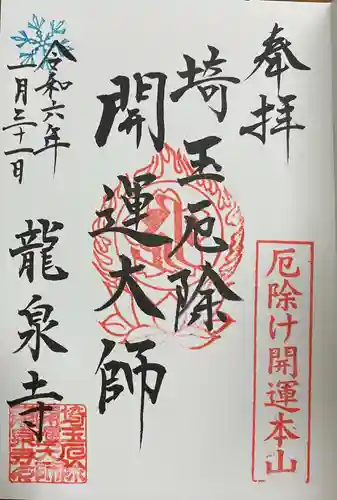 奉拝
厄除け開運本山
埼玉厄除
開運大師
令和六年
一月三十一日
龍泉寺
埼玉厄除
開運大師
龍泉寺